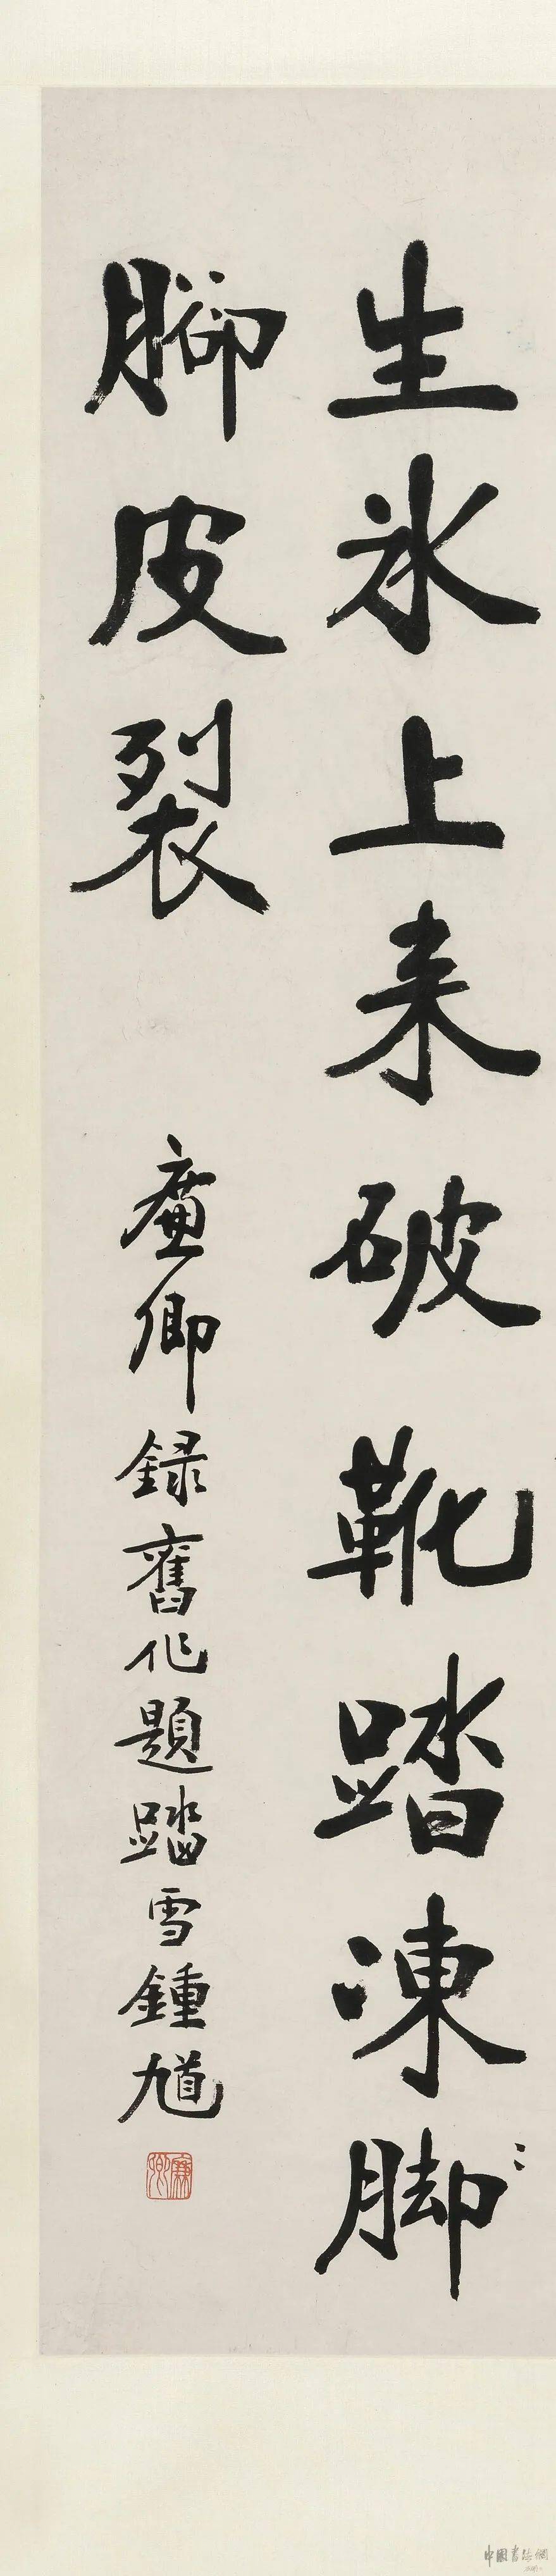 生氷上来破靴踏凍脚
腳皮裂
廉卿録舊作題踏雪鍾馗
廉卿
中國書法網